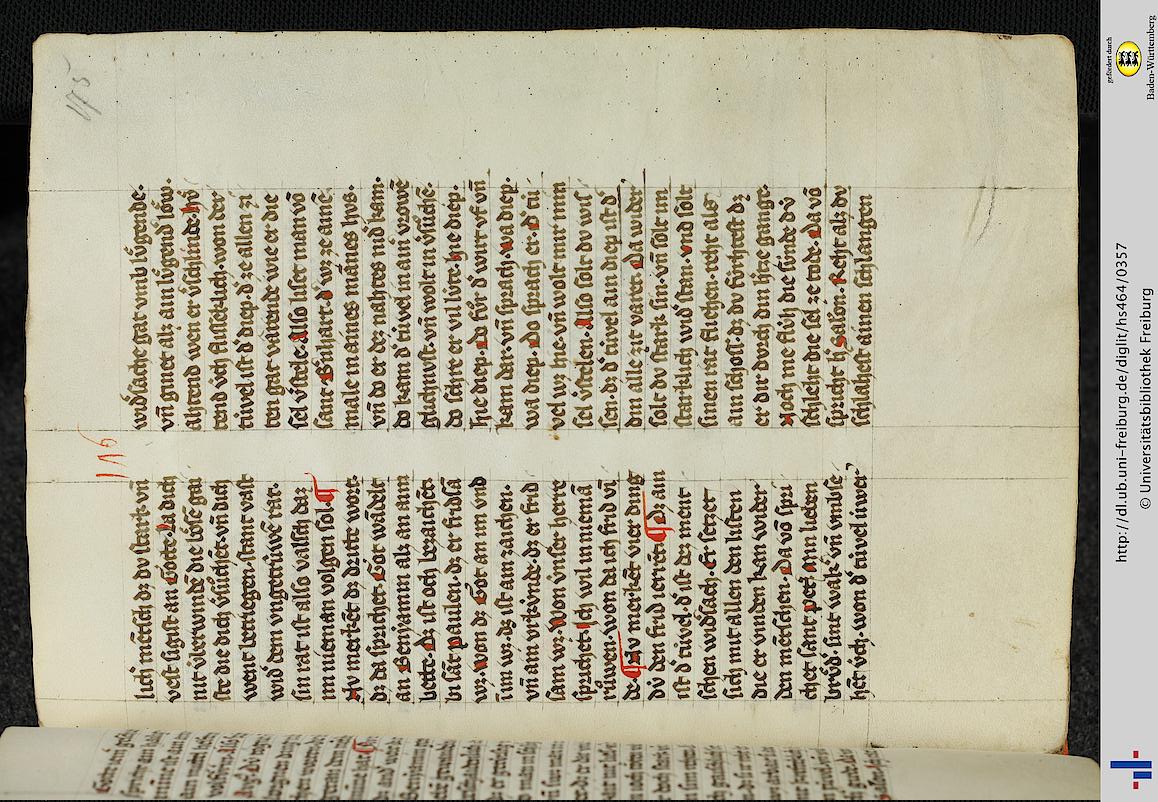 175
116
lich mēsch dz dv stark vn̄
vest sigist an Gotte. La dich
nit v́berwindē die bo̓sē gai
ste die dich v́sůchēt vn̄ dich
went betriegen. stant vast
wid' den vngetrúwē rat.
sin rat ist also valsch daz
im nieman volgen sol. ¶
Nv merkēt dz dritte wort.
dz da sprichet. Got wādelt
an Beniamin alz an aim
bette. Dz ist och bezaichēt
bi sāt paulen. dz er fridsā
wz. Won dz Got an im vnd
sun wz. dz ist ain zaichen.
vn̄ ain vrkvnde. dz er frid
sam wz. Won vnser herre
sprichet. Jch wil in niemā
růwen. won da ich frid vī
de. ¶ Nv merkēt vier ding
dú den frid zerrēt. ¶ Dz ain
ist d' túvel. d' ist dez ment
schen widsach. Er setzet
sich mit allen den listen
die er vinden kan wider
den mētschen. Da vō spri
chet sant pet'. lieben
brůd' sint wak' vn̄ vmbse
hēt v́ch. won d' túvel iuwer
widsache gat vmb lůgende.
vn̄ ginet alz ain lůgend lo̓w.
ahtend wen er v́schlinde. hv̓
tend v́ch flisseklich. won der
túvel ist d' diep. d' ze allen zi
ten gat vārende wie er die
sel v́stele. Also liset man vō
sant Gerhart. d' wz ze ainē
male in aines mānes hvs.
vn̄ do er dez nahtes nid kam.
do kam d' túvel in ain' vrowē
glichnist. vn̄ wolt in v́sůchē.
do schre er vil lute. hie diep.
hie diep. Do fůr d' wirt vf vn̄
kam dar. vn̄ sprach. wa diep.
wa diep. Do sprach er. d' tú
vel wz hie. vn̄ wolt mir min
sel v́stelen. Also solt dv wis
sen. dz d' túvel ain diep ist d'
din alle zit varet. Da wider
solt dv stark sin. vn̄ solt im
starklich wid'stan. vnd solt
sinen rat fliehen. reht als
ain schoss. dz dv fúrhtest dz
er dir durch din h'tze gange.
Noch me flúh die súnde. dú
schleht die sel ze tode. Da vō
spricht h' salon. Reht alz dv
schlahest ainen schlangen
http://dl.ub.uni-freiburg.de/diglit/hs464/0357
© Universitätsbibliothek Freiburg
gefördert durch
Baden-Württemberg